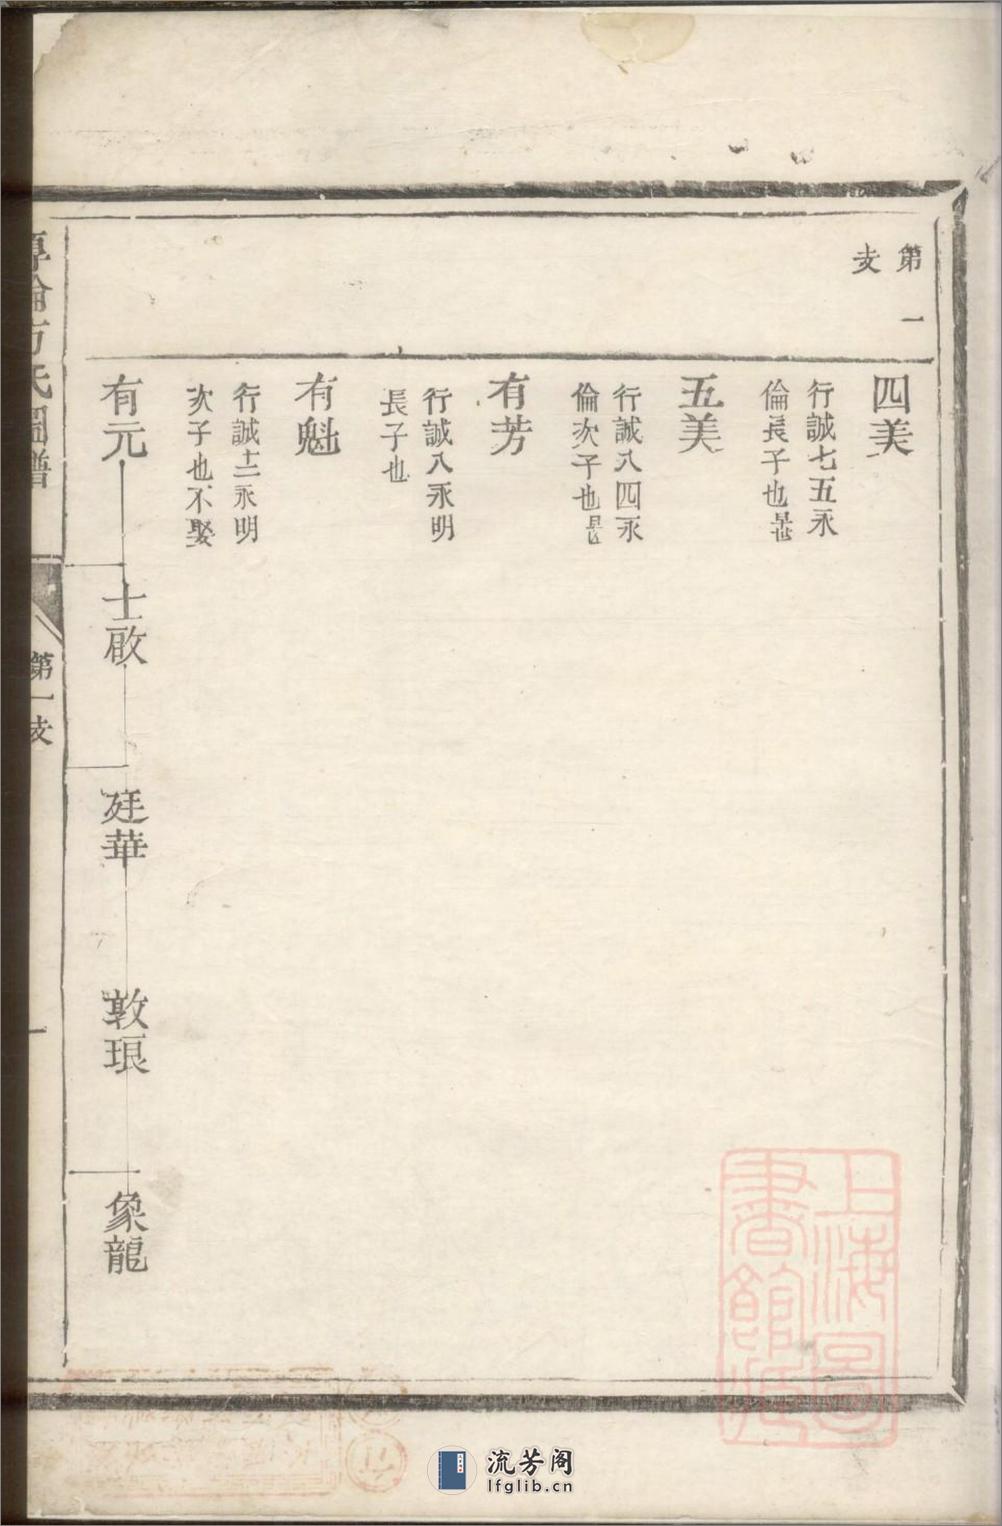 第一
支
四美
行誠七五永
倫長子也早世
五美
行誠八四永
倫次子也早世
有芳
行誠八永明
長子也
有魁
行誠十二永明
次子也不娶
有元
士啟
廷華
敦琅
象龍
方氏圖譜
第一支
一
上海圖
書館藏
流芳阁
lfglib.cn